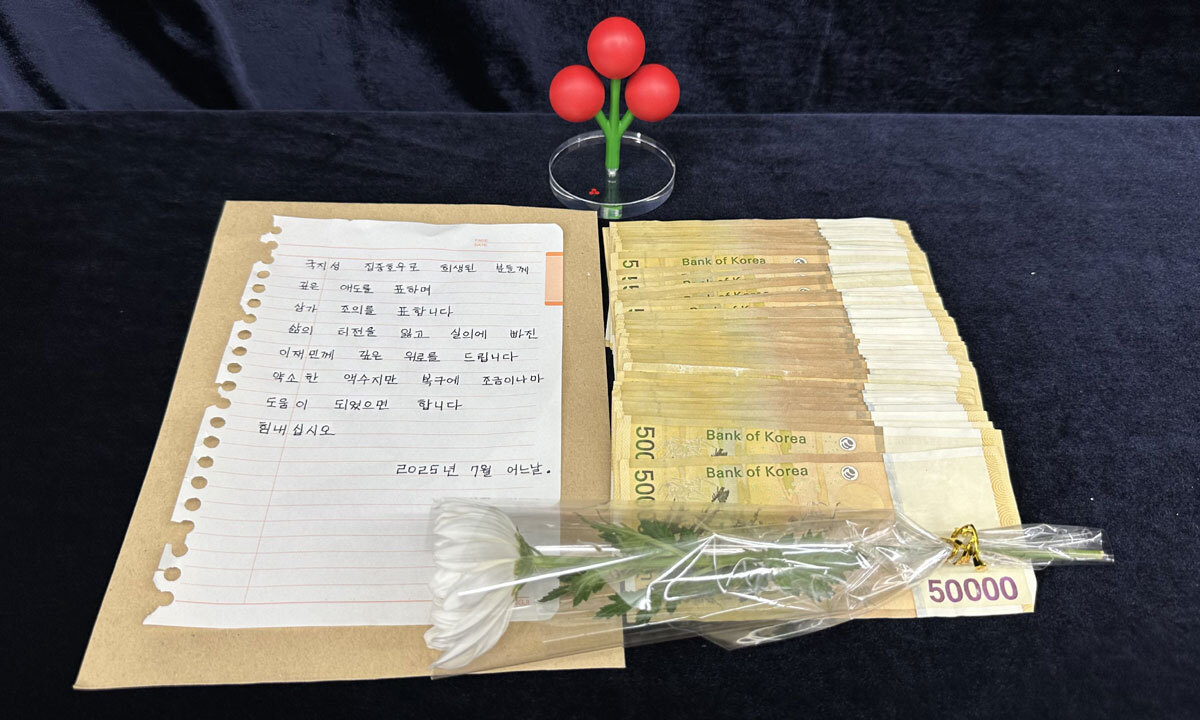 PAGE
DATE
국지성 집중호우로 희생된 분들께
깊은 애도를 표하며
삼가 조의를 표합니다
삶의 터전을 잃고 실의에 빠진
이재민께 깊은 위로를 드립니다
약소한 액수지만 복구에 조금이나마
도움이 되었으면 합니다
힘내십시오
2025년 7월 어느날.
Bank of Korea
Bank of Korea
500
Bank of Korea
500
Bank of Korea
50000